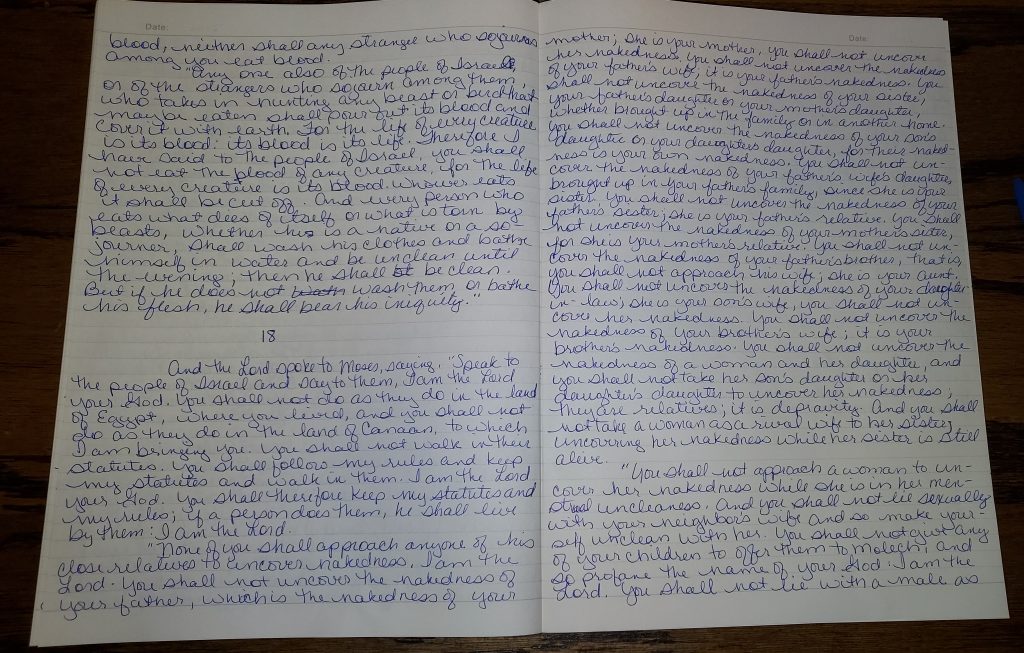 Date:
blood, neither shall any stranger who sojourns
among you eat blood.
"Any one also of the people of Israel,
or of the strangers who sojourn among them,
who takes in hunting any beast or bird that
may be eaten shall pour out its blood and
cover it with earth. For the life of every creature
is its blood: its blood is its life. Therefore I
have said to the people of Israel, you shall
not eat the blood of any creature, for the life
of every creature is its blood. Whoever eats
it shall be cut off. And every person who
eats what dees of itself or what is torn by
beasts, whether he is a native or a so-
journer, shall wash his clothes and bathe
himself in water and be unclean until
the evening; then he shall be clean.
But if he does not wash them or bathe
his flesh, he shall bear his inequity."
18
And the Lord spoke to Moses, saying, "Speak to
the people of Israel and say to them, I am the Lord
your God. You shall not do as they do in the land
of Egypt, where you lived, and you shall not
do as they do in the land of Canaan, to which
I am bringing you. You shall not walk in their
statutes. You shall follow my rules and keep
my statutes and walk in them. I am the Lord
your God. You shall therefore keep my statutes and
my rules; if a person does them, he shall live
by them: I am the Lord.
"None of you shall approach anyone of his
close relatives to uncover nakedness. I am the
Lord. You shall not uncover the nakedness of
your father, which is the nakedness of your
Date:
mother; she is your mother, you shall not uncover
her nakedness. You shall not uncover the nakedness
of your father's wife; it is your father's nakedness. You
shall not uncover the nakedness of your sister,
your father's daughter or your mother's daughter,
whether brought up in the family or in another home.
You shall not uncover the nakedness of your son's
daughter or your daughter's daughter, for their naked-
ness is your own nakedness. You shall not un-
cover the nakedness of your father's wife's daughter,
brought up in your father's family, since she is your
sister. You shall not uncover the nakedness of your
father's sister; she is your father's relative. You shall
not uncover the nakedness of your mother's sister,
for she is your mother's relative. You shall not un-
cover the nakedness of your father's brother, that is,
you shall not approach his wife; she is your aunt.
You shall not uncover the nakedness of your daughter-
in-law; she is your son's wife, you shall not un-
cover her nakedness. You shall not uncover the
nakedness of your brother's wife; it is your
brother's nakedness. You shall not uncover the
nakedness of a woman and her daughter, and
you shall not take her son's daughter or her
daughter's daughter to uncover her nakedness;
they are relatives; it is depravity. And you shall
not take a woman as a rival wife to her sister,
uncovering her nakedness while her sister is still
alive.
"You shall not approach a woman to un-
cover her nakedness while she is in her men-
strual uncleaness. And you shall not lie sexually
with your neighbor's wife and so make your-
self unclean with her. You shall not give any
of your children to offer them to Molech, and
so profane the name of your God: I am the
Lord. You shall not lie with a male as